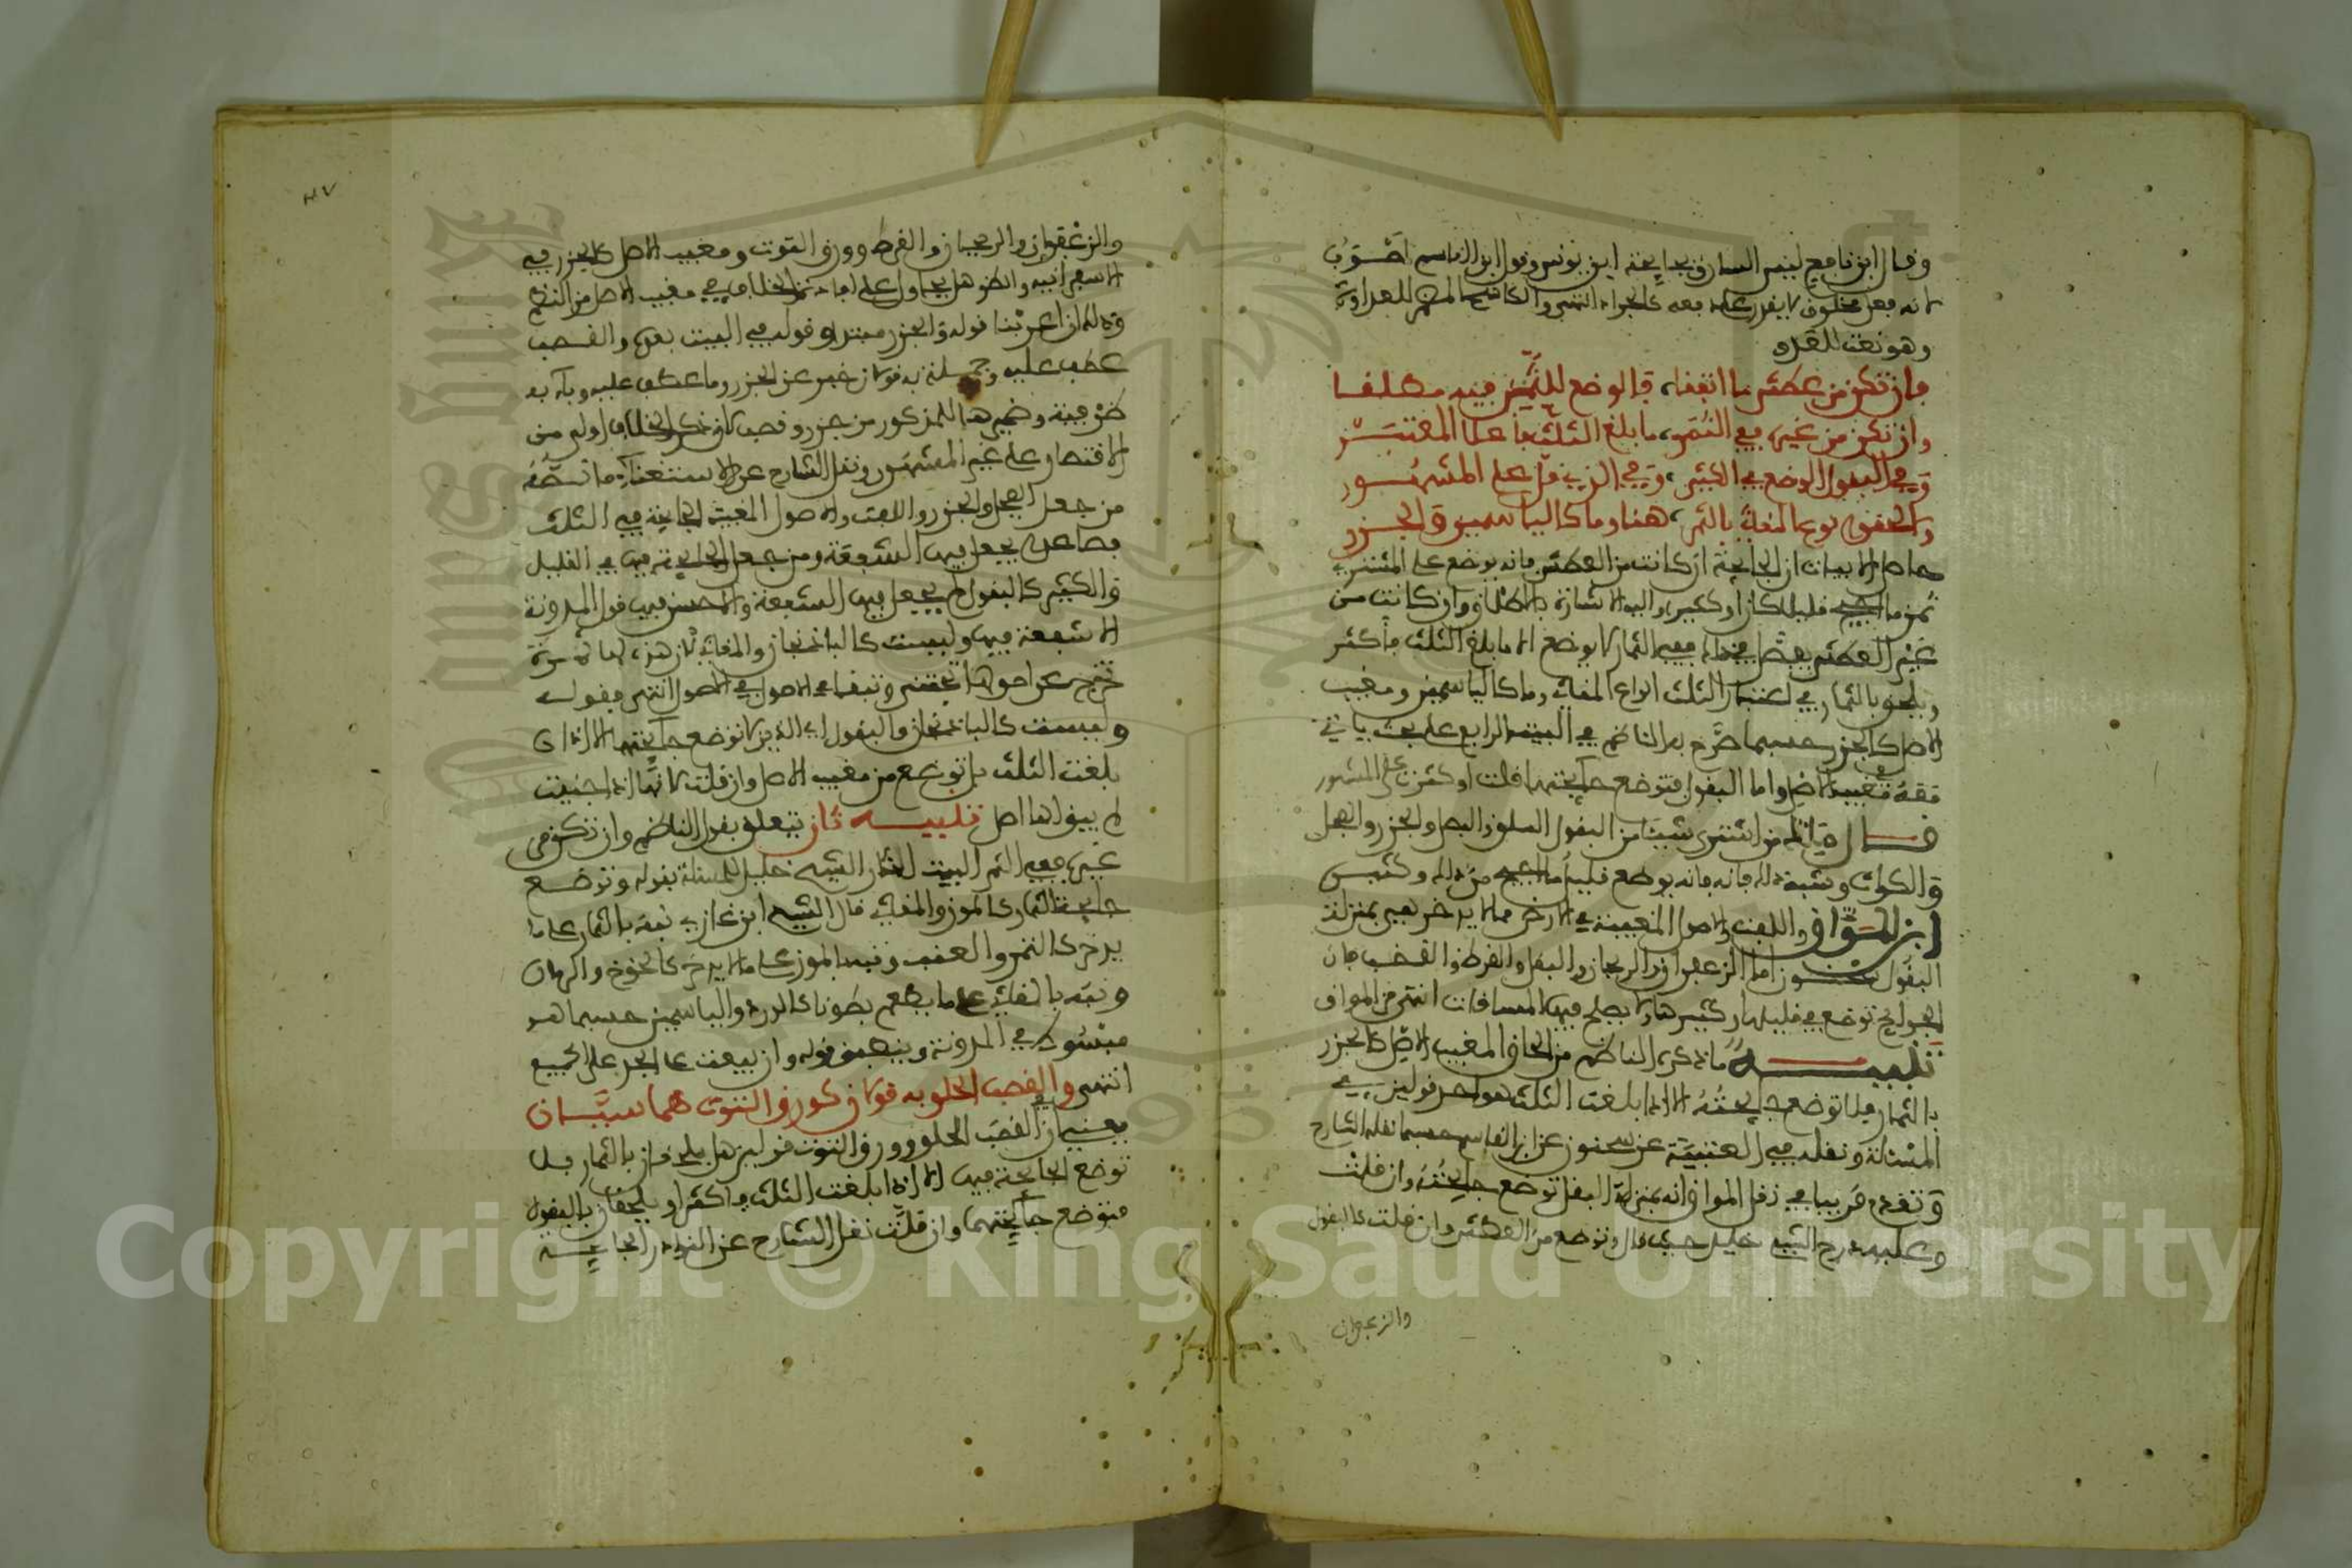 وقال ابن نافع ليس السارق بجايحة ابن يونس وقول ابن القاسم اصوب
لانه فعل مخلوق لا يقدر على دفعه كالجراد انتهى والكاشح المضمر للعداوة
وهو نعت للعدو
فان تكن من عطش ما اتفقا، فالوضع للثمن فيه مطلقا
وان تكن من غيره ففي الثمر، ما بلغ الثلث فاعلا المعتبر
وفي البقول الوضع في الكثير، وفي الذي قل على المشهور
والحقوا نوع المقاثي بالثمر، هنا وما كالياسمين والجزر
حاصل الابيات ان الجايحة ان كانت من العطش فانه يوضع على المشتري
ثمن ما اجيح قليلا كان او كثيرا واليه الاشارة بالاطلاق وان كانت من
غير العطش ففي الثمار لا يوضع الا ما بلغ الثلث فاكثر
ويلحق بالثمار في اعتبار الثلث انواع المقاثي وما كالياسمين ومغيب
الاصل كالجزر حسبما صرح به الناظم في البيت الرابع على بحث ياتي
فقه مغيب الاصل واما البقول فتوضع جايحتها قلت او كثرت على المشهور
قال مالك من اشترى شيئا من البقول السلق والبصل والجزر والفجل
والكراث وشبه ذلك فانه يوضع قليل ما اجيح من ذلك وكثيره
ابن المواز واللفت والاصول المغيبة في الارض مما لا يدخر هي بمنزلة
البقول سحنون اما الزعفران والريحان والبقل والقرط والقضب فان
الجوايح توضع في قليلها وكثيرها ولا يصلح فيها المساقات انتهى من المواق
تنبيه ما ذكره الناظم من الحاق المغيب الاصل كالجزر
بالثمار فلا توضع جايحته الا اذا بلغت الثلث هو احد قولين في
المسئلة ونقله في العتبية عن سحنون عن ابن القاسم حسبما نقله الشارح
وتقدم قريبا في نقل المواق انه بمنزلة البقل توضع جايحته وان قلت
وعليه درج الشيخ خليل حيث قال وتوضع من العطش وان قلت كالبقول
والزعفران
٤٧
والزعفران والريحان والقرط وورق التوت ومغيب الاصل كالجزر
ولذلك اعربنا قوله والجزر مبتدا وقوله في البيت بعده والقصب
عطف عليه وجملة به قولان خبر عن الجزر وما عطف عليه وباء به
ظرفية وضميرها للمذكور من جزر وقصب لان ذكر الخلاف اولى من
الاقتصار على غير المشهور ونقل الشارح عن الاستغناء ما نصه
من جعل الفجل والجزر واللفت والاصول المغيبة الجايحة فيها الثلث
فصاعدا يجعل فيها الشفعة ومن جعل الجايحة فيها في القليل
والكثير كالبقول لم يجعل فيها الشفعة والاحسن فيها قول المدونة
لا شفعة فيها وليست كالباذنجان والمقاثي لان هذه لها ثمرة
تخرج عن اصولها تجتنى وتبقى الاصول انتهى فقوله
وليست كالباذنجان والبقول اي الذين لا توضع جايحتها الا اذا
بلغت الثلث بل توضع من مغيب الاصل وان قلت لانها اذا جنيت
لم يبق لها اصل تنبيه ثان يتعلق بقول الناظم وان تكن من
غيره ففي الثمر البيت اشار الشيخ خليل للمسئلة بقوله وتوضع
جايحة الثمار كالموز والمقاثي قال الشيخ ابن غازي نبه بالثمار على ما
يدخر كالتمر والعنب ونبه بالموز على ما لا يدخر كالخوخ والرمان
ونبه بالمقاثي على ما يطعم بطونا كالورد والياسمين حسبما هو
مبسوط في المدونة وينطبق قوله وان بيعت على الجذ على الجميع
انتهى والقصب الحلو به قولان كورق التوت هما سيان
يعني ان في القصب الحلو وورق التوت قولين هل يلحقان بالثمار فلا
توضع الجايحة فيها الا اذا بلغت الثلث فاكثر او يلحقان بالبقول
فتوضع جايحتهما وان قلت نقل الشارح عن النوادر الجايحة